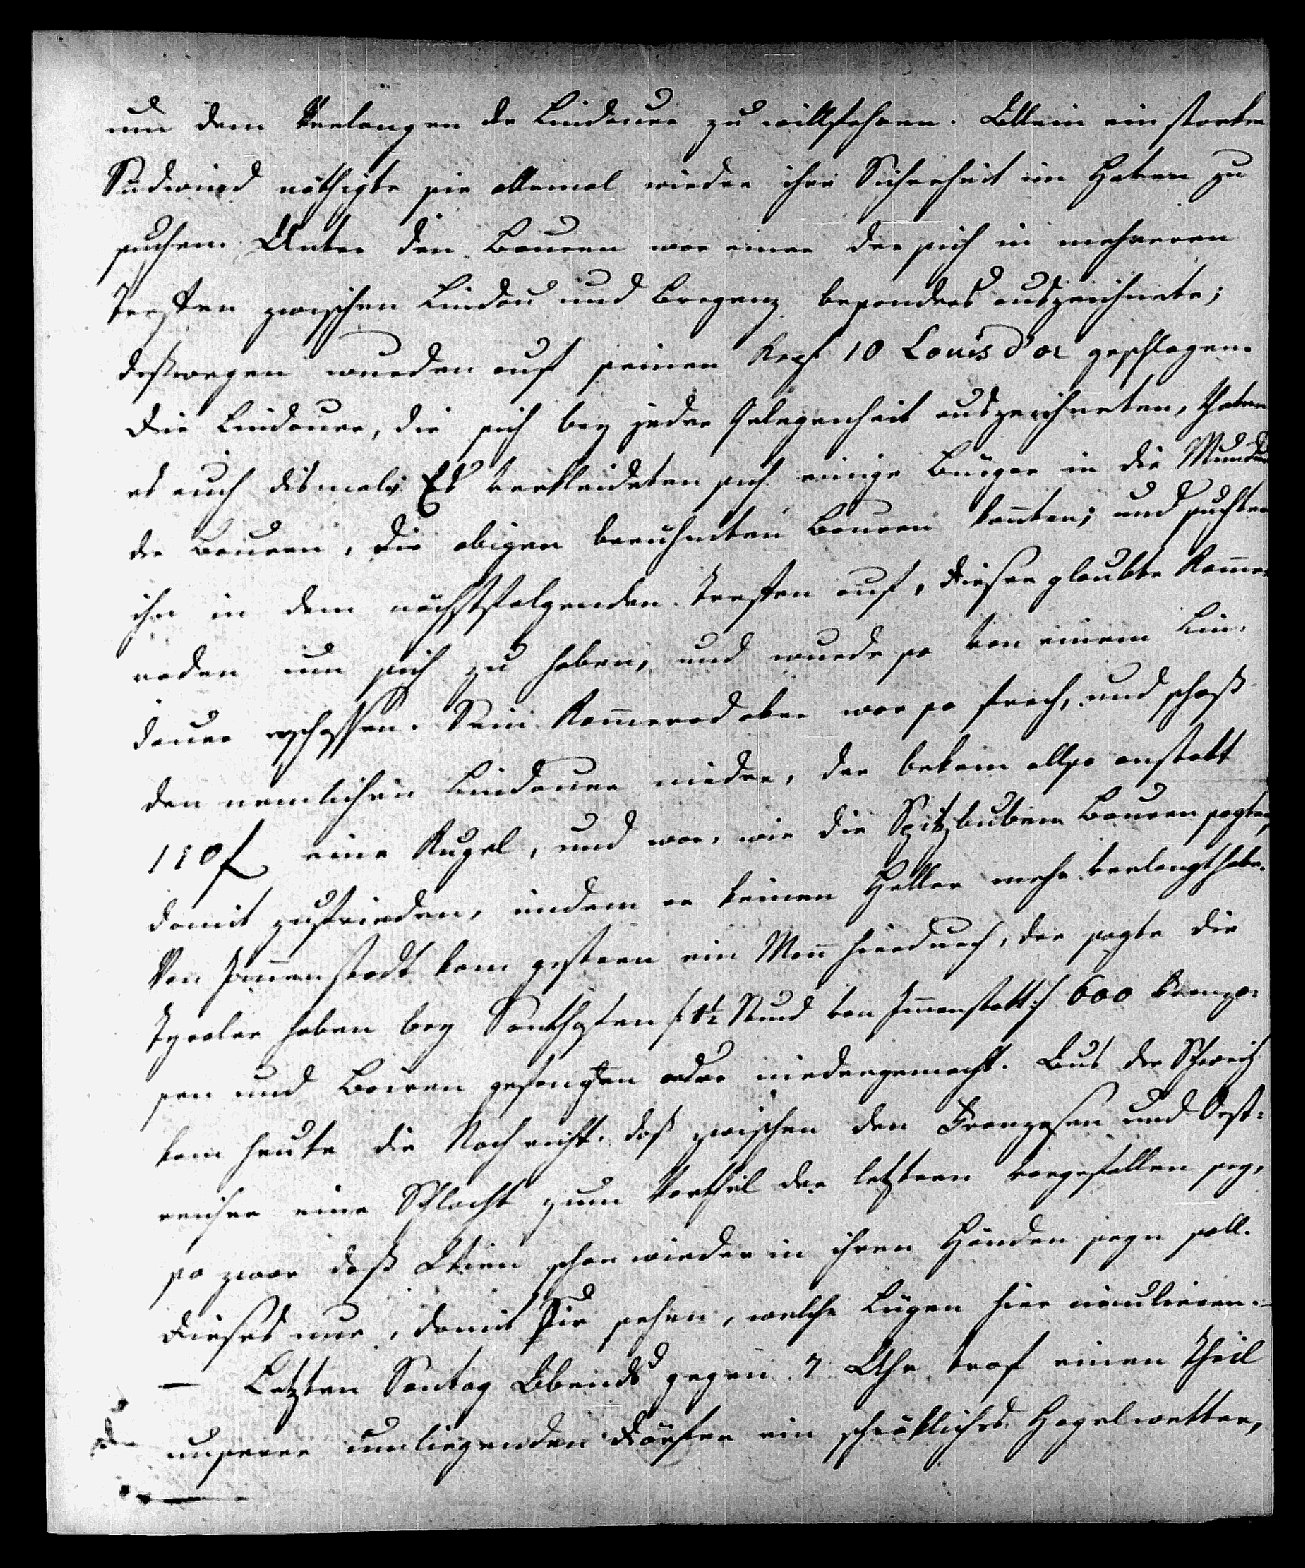 um dem Verlangen der Lindauer zu willfahren. Allein ein starker
Südwind nöthigte sie allemal wieder ihre Sicherheit im Hafen zu
suchen. Unter den Bauren war einer der sich in mehreren
Treffen zwischen Lindau und Bregenz besonders auszeichnete;
deßwegen wurden auf seinen Kopf 10 Louis d'or geschlagen.
Die Lindauer, die sich bey jeder Gelegenheit auszeichneten, thaten
es auch dismal; Es verkleideten sich einige Bürger in die Mundur
der Bauren, die obigen berühmten Bauren kanten; und suchten
ihn in dem nächstfolgenden Treffen auf, dieser glaubte Kamme-
raden um sich zu haben, und wurde so von einem Lin-
dauer erschossen. Sein Kammerad aber war so frech, und schoß
den nemlichen Lindauer nieder, der bekam allso anstatt
110 f eine Kugel, und war, wie die Spitzbuben Bauren sagten,
damit zufrieden, indem er keinen Heller mehr verlangt habe.
Von Immenstadt kam gestern ein Mann hierdurch, der sagte die
Tyroler haben bey Sonthofen /: 1½ Stund von Immenstatt :/ 600 Franzo-
sen und Bairen gefangen oder niedergemacht. Aus der Schweitz
kam heute die Nachricht, daß zwischen den Franzosen und Oest-
reicher eine Schlacht zum Vortheil der letztern vorgefallen sey,
so zwar daß Wien schon wieder in ihren Händen seyn soll.
Dieses nur, damit Sie sehen, welche Lügen hier circulieren.
— Letzten Sontag Abends gegen 7 Uhr traf einen Theil
unserer umliegenden Dörfer ein schrökliches Hagelwetter,